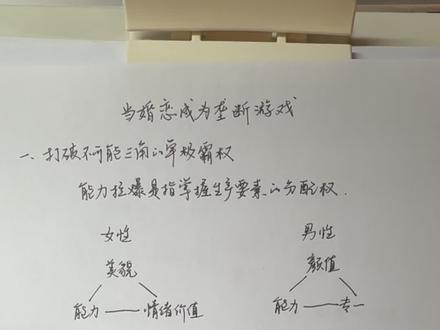 当婚恋成为垄断游戏
一、打破不可能三角的单极霸权
能力拉爆是指掌握生产要素的分配权.
女性 男性
美貌 颜值
能力——情绪价值 能力——专一